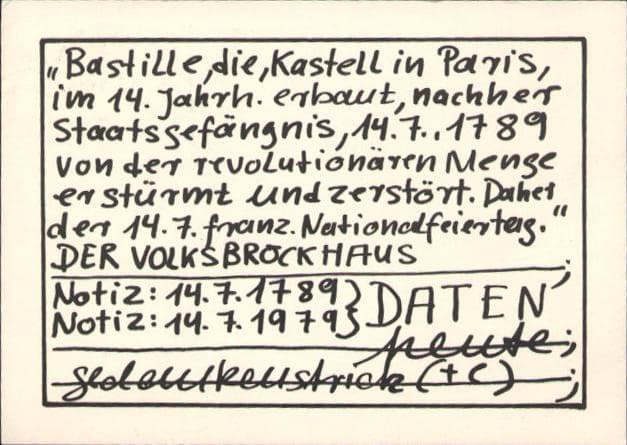 „Bastille, die, Kastell in Paris,
im 14. Jahrh. erbaut, nachher
Staatsgefängnis, 14.7..1789
von der revolutionären Menge
erstürmt und zerstört. Daher
der 14.7. franz. Nationalfeiertag.“
DER VOLKSBROCKHAUS
Notiz: 14.7.1789} DATEN;
Notiz: 14.7.1979}
heute;
gedenkenstrich (+c);